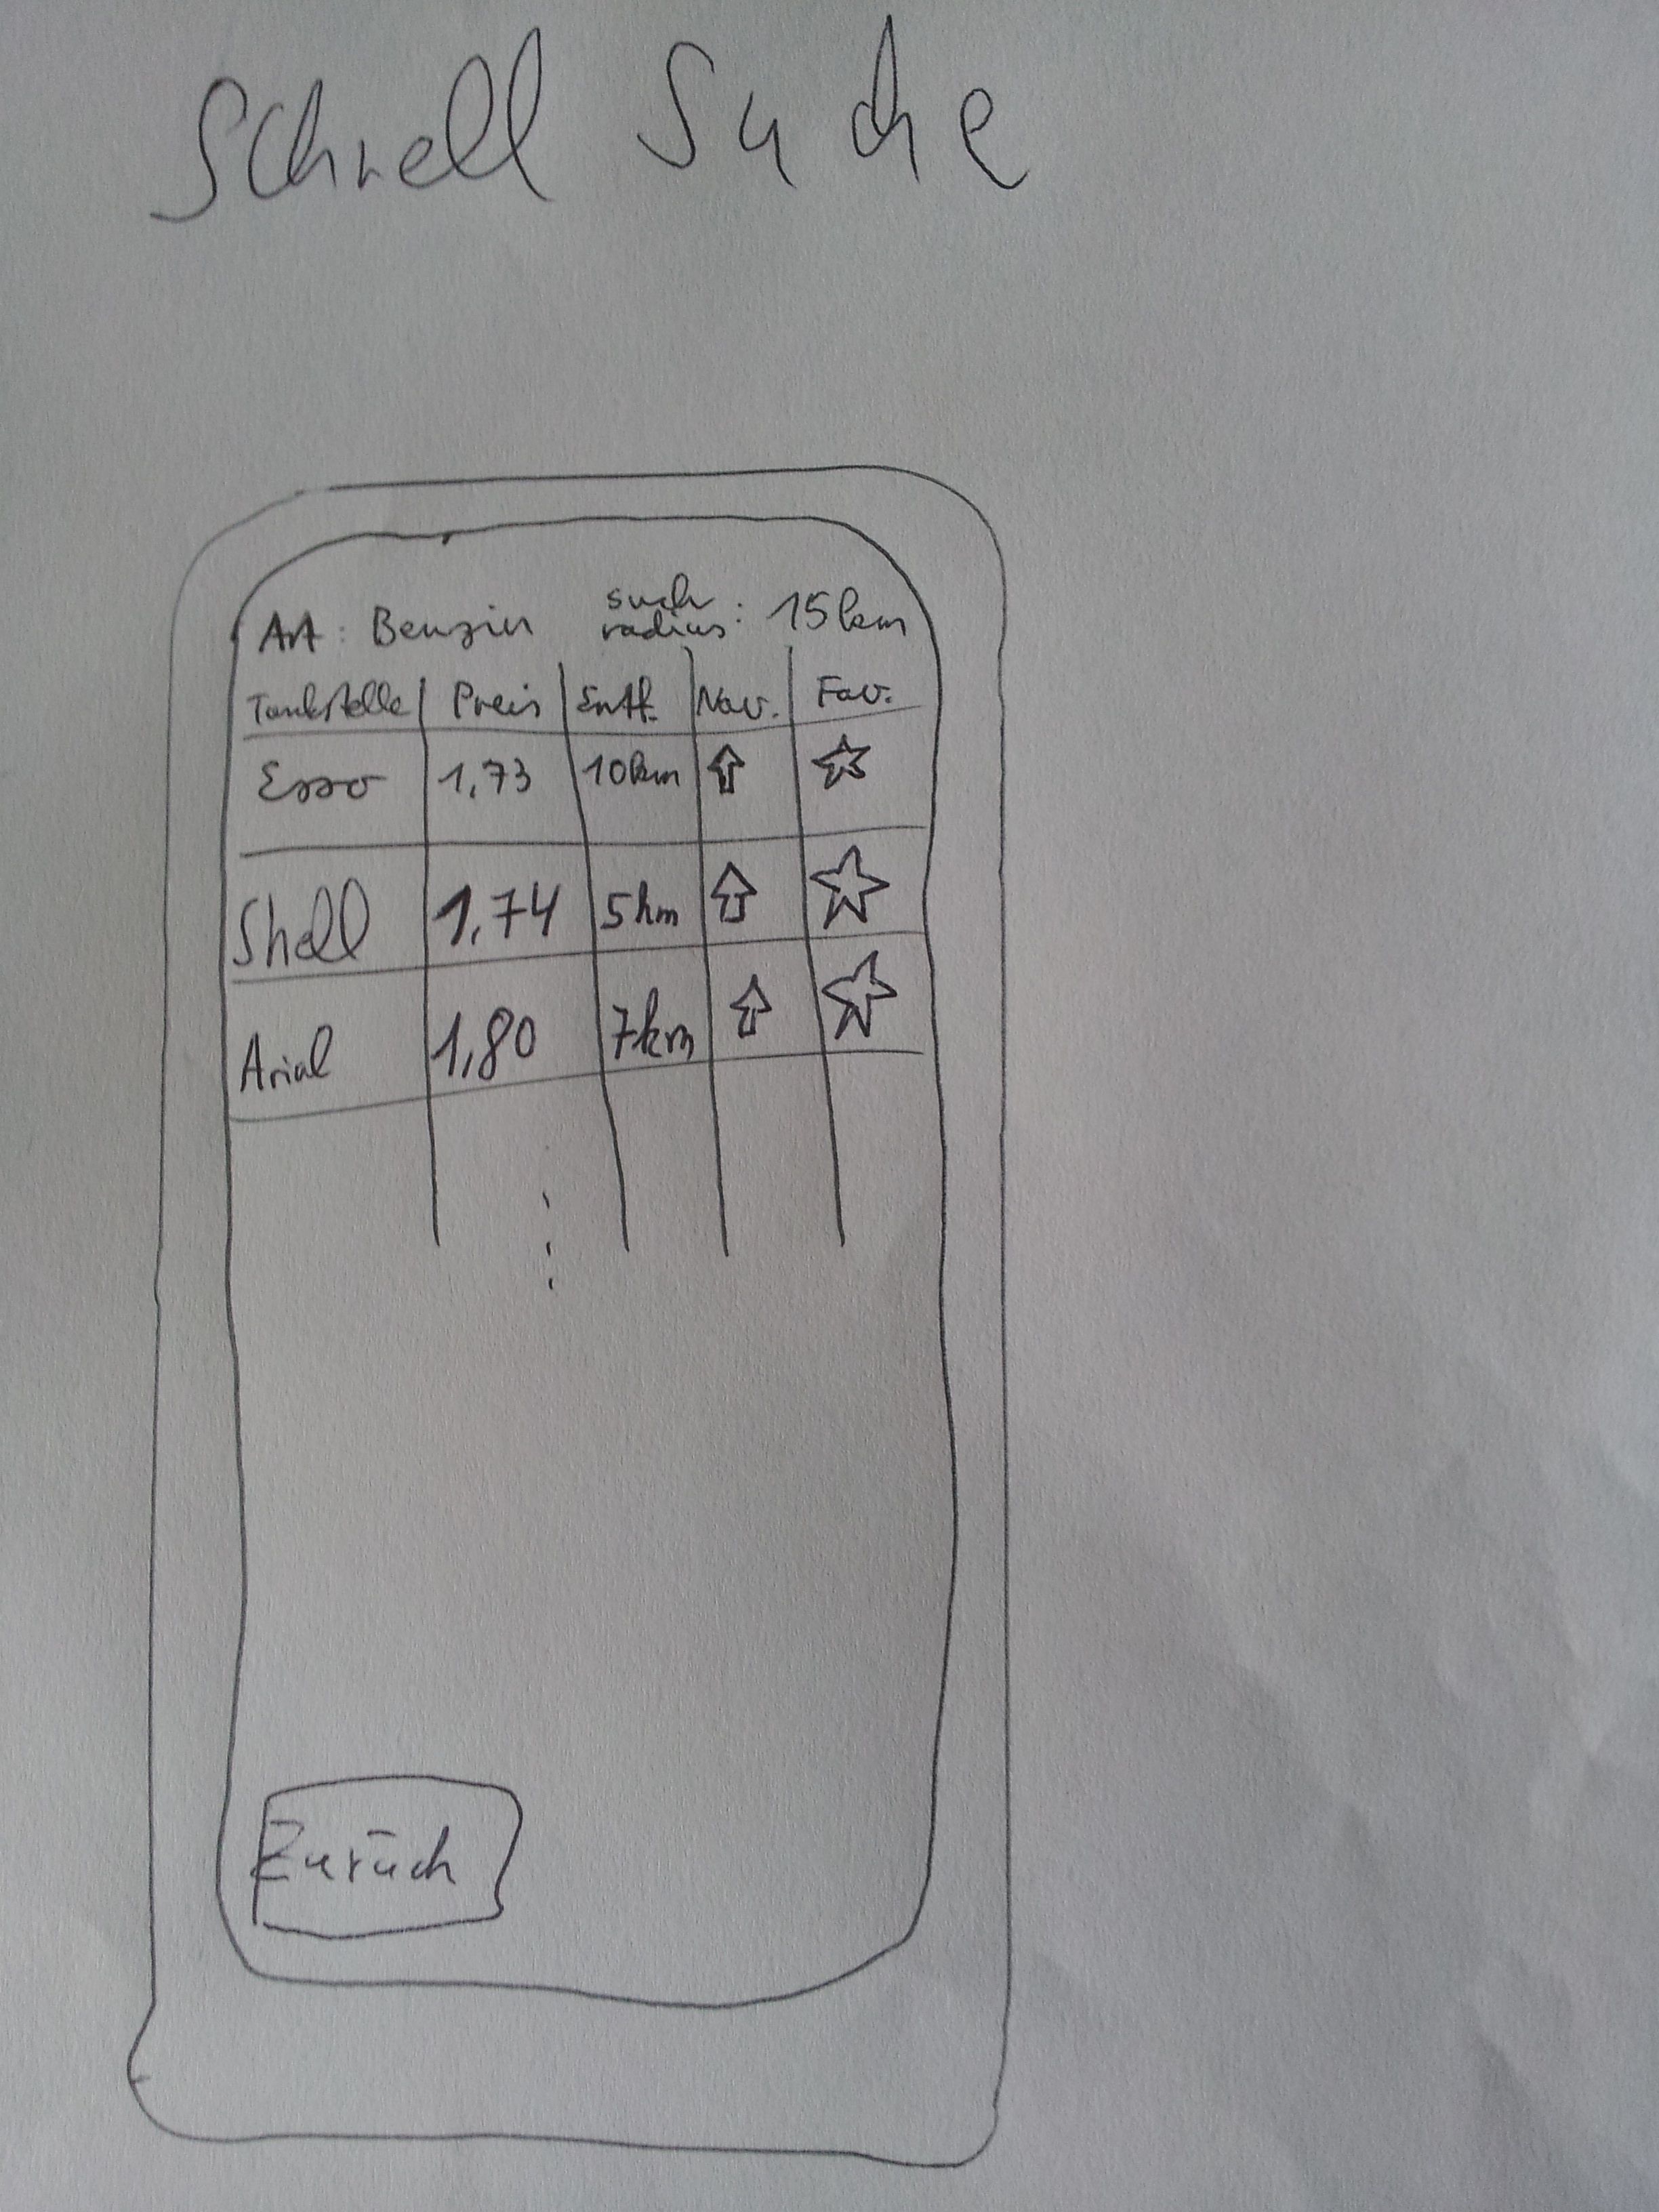 Schnell Suche
Art: Benzin such radius: 15km
Tankstelle Preis Entf. Nav. Fav.
Esso 1,73 10km
Shell 1,74 5km
Arial 1,80 7km
Zurück